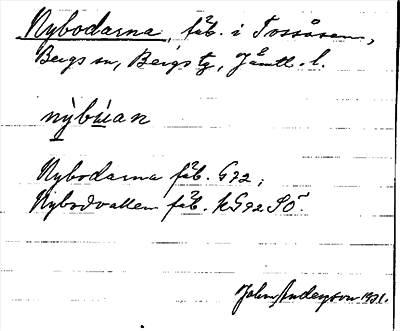 Nybodarna, fäb. i Tossåsen,
Bergs sn, Bergs tg, Jämtl. l.
nỳbúan
Nybodarna fäb. G92;
Nybodvallen fäb. kG92 SÖ.
John Anderson 1931.